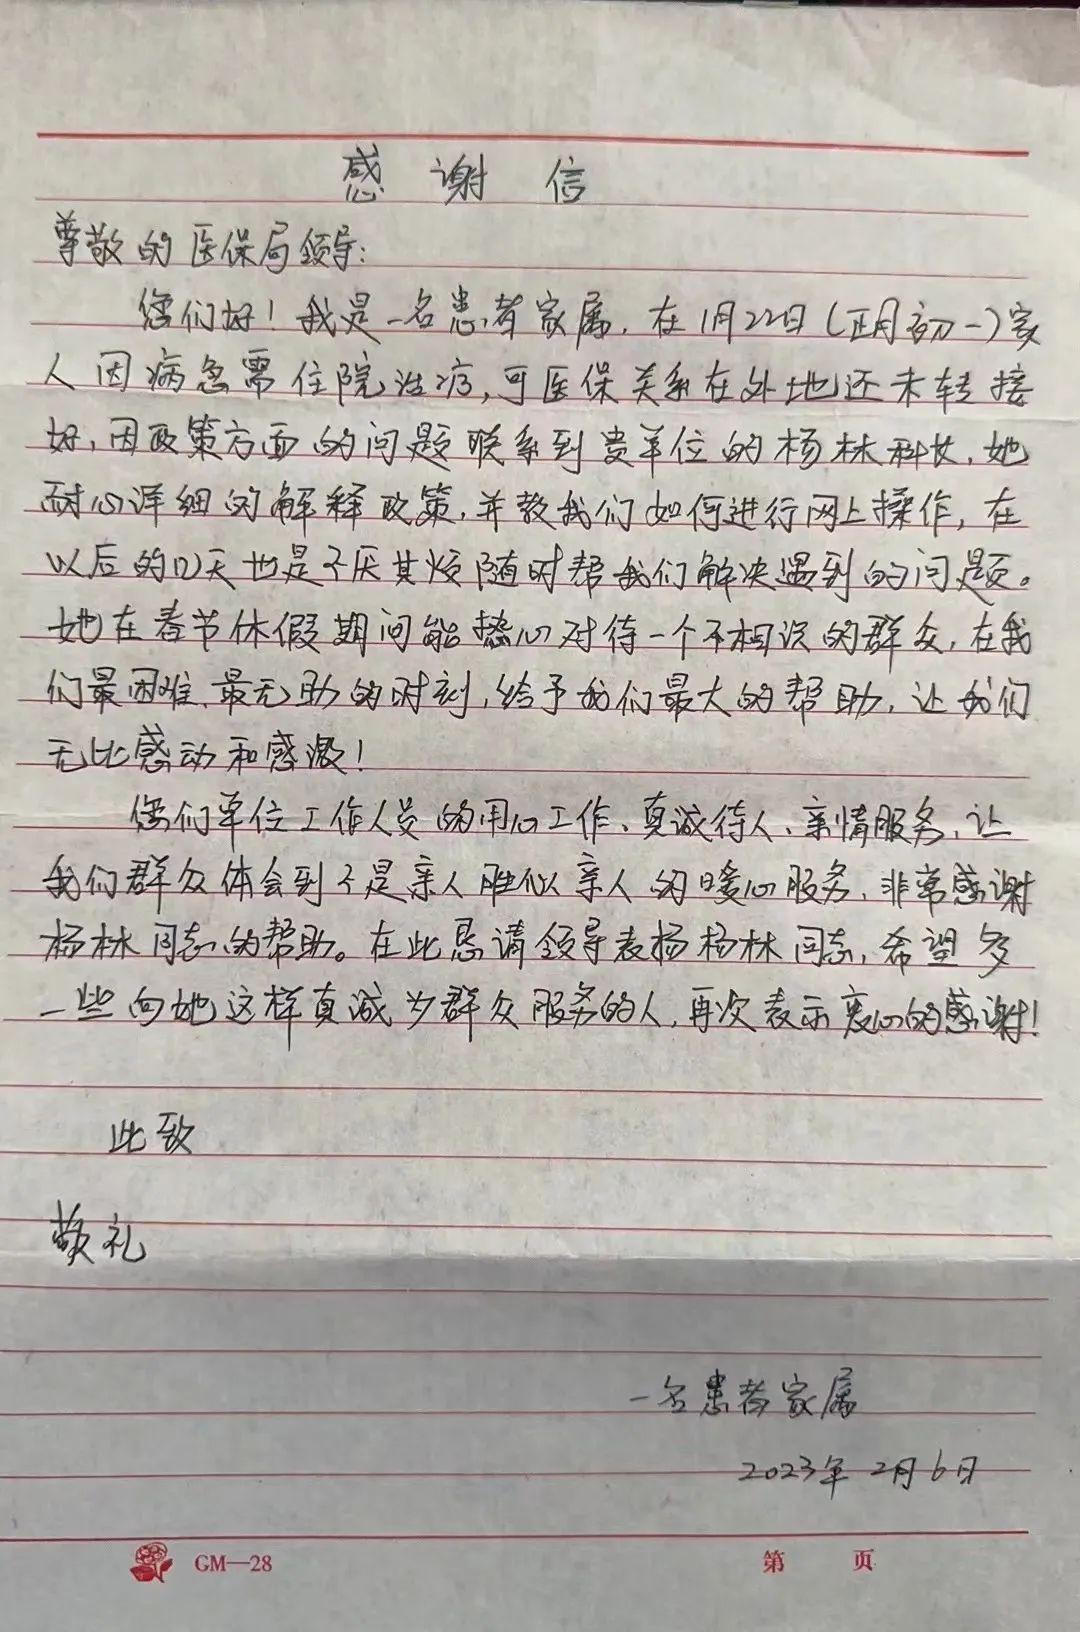 感谢信
尊敬的医保局领导:
您们好!我是一名患者家属,在1月22日(正月初一)家
人因病急需住院治疗,可医保关系在外地还未转接
好,因政策方面的问题联系到贵单位的杨林科长,她
耐心详细的解释政策,并教我们如何进行网上操作,在
以后的几天也是不厌其烦随时帮我们解决遇到的问题。
她在春节休假期间能热心对待一个不相识的群众,在我
们最困难、最无助的时刻,给予我们最大的帮助,让我们
无比感动和感激!
您们单位工作人员的用心工作、真诚待人、亲情服务,让
我们群众体会到不是亲人胜似亲人的暖心服务,非常感谢
杨林同志的帮助。在此恳请领导表扬杨林同志,希望多
一些向她这样真诚为群众服务的人,再次表示衷心的感谢!
此致
敬礼
一名患者家属
2023年2月6日
GM—28 第 页